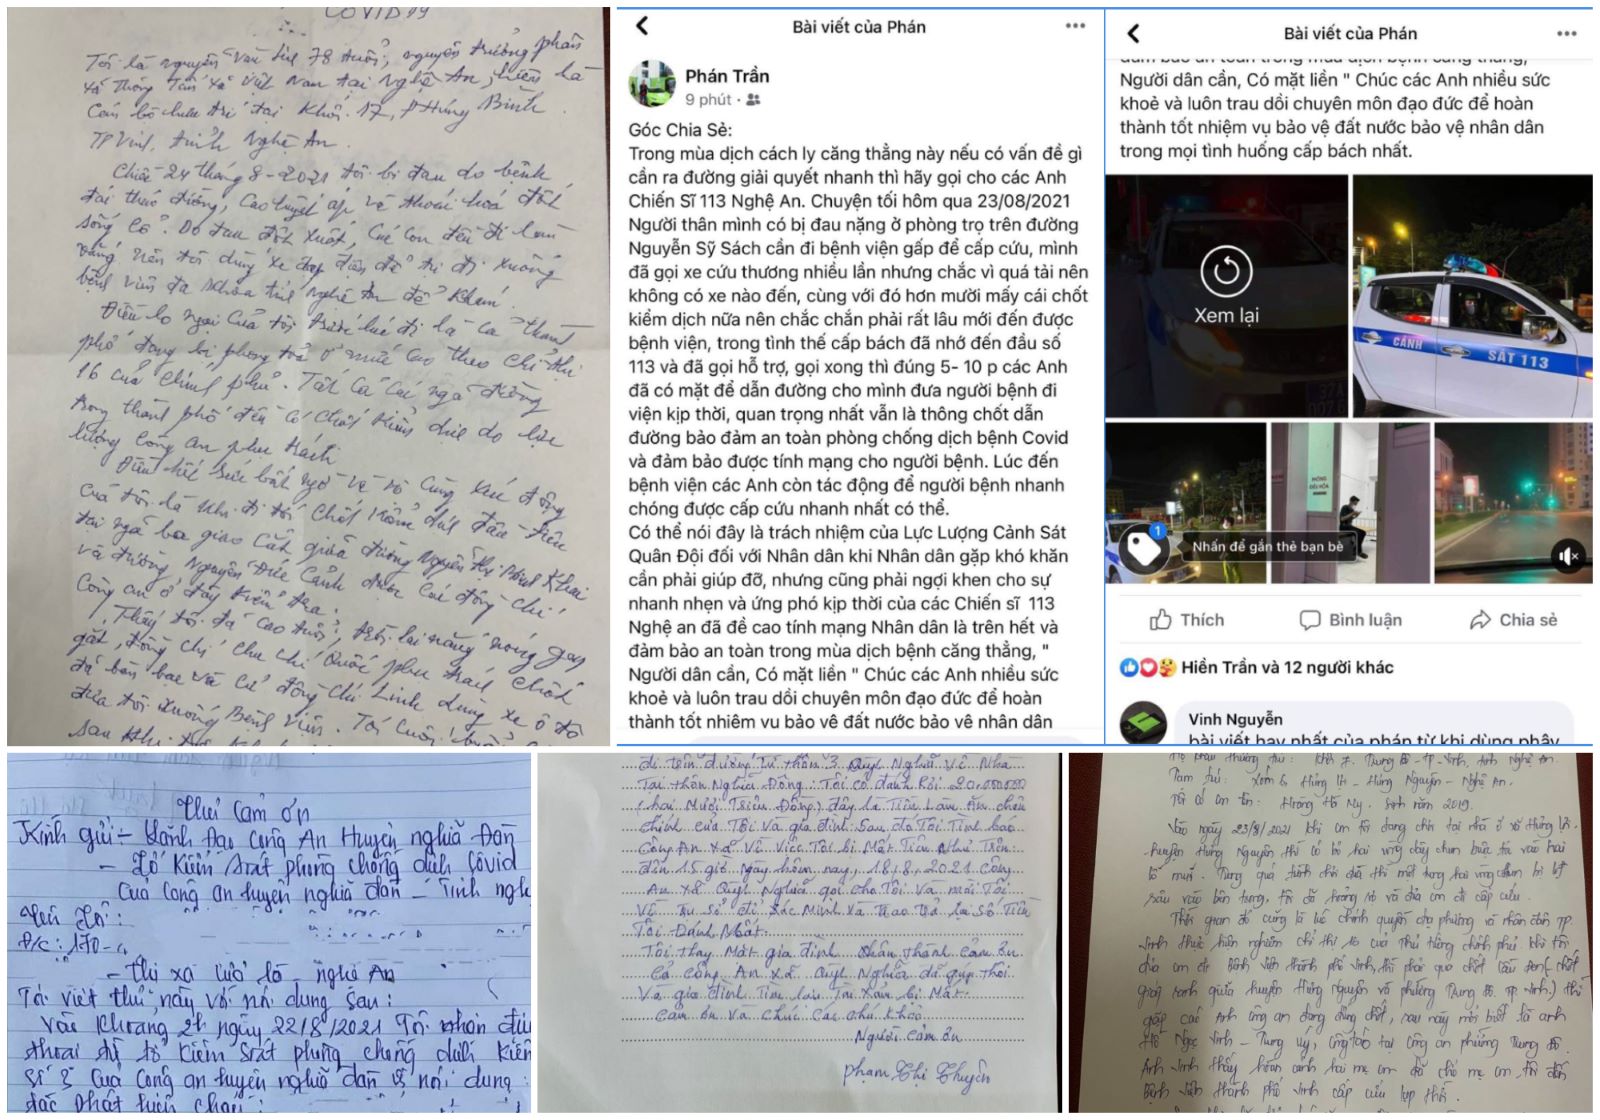 COVID 19
Tôi là nguyễn văn 78 tuổi, nguyên trưởng phân
xã Thông Tấn xã Việt Nam tại Nghệ An, hiện là
Cán bộ hưu trí tại Khối 17, P Hưng Bình
TP Vinh, tỉnh Nghệ An.
Chiều 24 tháng 8-2021 tôi bị đau do bệnh
đái tháo đường, Cao huyết áp và thoái hoá đốt
sống Cổ. Do đau đột xuất, Các Con đều đi làm
vắng nên tôi dùng xe đạp điện để đi xuống
bệnh viện đa khoa tỉnh Nghệ An để Khám.
Điều lo ngại Của tôi trước lúc đi là Cả thành
phố đang bị phong toả ở mức Cao theo Chỉ thị
16 của Chính phủ. Tất Cả Các ngã đường
trong thành phố đều có Chốt Kiểm dịch do lực
lượng Công an phụ trách
Điều hết sức bất ngờ và vô Cùng xúc động
Của tôi là khi đi tới Chốt Kiểm dịch đầu tiên
tại ngã ba giao Cắt giữa đường Nguyễn Thị Minh Khai
và đường Nguyễn Đức Cảnh được Các đồng chí
Công an ở đây Kiểm tra.
Thấy tôi đã Cao tuổi, trời lại nắng nóng gay
gắt, đồng chí Chu chí Quốc phụ trách Chốt
đã bàn bạc và Cử đồng Chí Linh dùng xe ô tô
đưa tôi xuống Bệnh Viện. Tới
sau khi
Bài viết của Phán
Phán Trần
9 phút
Góc Chia Sẻ:
Trong mùa dịch cách ly căng thẳng này nếu có vấn đề gì
cần ra đường giải quyết nhanh thì hãy gọi cho các Anh
Chiến Sĩ 113 Nghệ An. Chuyện tối hôm qua 23/08/2021
Người thân mình có bị đau nặng ở phòng trọ trên đường
Nguyễn Sỹ Sách cần đi bệnh viện gấp để cấp cứu, mình
đã gọi xe cứu thương nhiều lần nhưng chắc vì quá tải nên
không có xe nào đến, cùng với đó hơn mười mấy cái chốt
kiểm dịch nữa nên chắc chắn phải rất lâu mới đến được
bệnh viện, trong tình thế cấp bách đã nhớ đến đầu số
113 và đã gọi hỗ trợ, gọi xong thì đúng 5- 10 p các Anh
đã có mặt để dẫn đường cho mình đưa người bệnh đi
viện kịp thời, quan trọng nhất vẫn là thông chốt dẫn
đường bảo đảm an toàn phòng chống dịch bệnh Covid
và đảm bảo được tính mạng cho người bệnh. Lúc đến
bệnh viện các Anh còn tác động để người bệnh nhanh
chóng được cấp cứu nhanh nhất có thể.
Có thể nói đây là trách nhiệm của Lực Lượng Cảnh Sát
Quân Đội đối với Nhân dân khi Nhân dân gặp khó khăn
cần phải giúp đỡ, nhưng cũng phải ngợi khen cho sự
nhanh nhẹn và ứng phó kịp thời của các Chiến sĩ 113
Nghệ an đã đề cao tính mạng Nhân dân là trên hết và
đảm bảo an toàn trong mùa dịch bệnh căng thẳng, "
Người dân cần, Có mặt liền " Chúc các Anh nhiều sức
khoẻ và luôn trau dồi chuyên môn đạo đức để hoàn
thành tốt nhiệm vụ bảo vệ đất nước bảo vệ nhân dân
Bài viết của Phán
đảm bảo an toàn trong mùa dịch bệnh căng thẳng, "
Người dân cần, Có mặt liền " Chúc các Anh nhiều sức
khoẻ và luôn trau dồi chuyên môn đạo đức để hoàn
thành tốt nhiệm vụ bảo vệ đất nước bảo vệ nhân dân
trong mọi tình huống cấp bách nhất.
Xem lại
CẢNH SÁT 113
1
Nhấn để gắn thẻ bạn bè
Thích
Bình luận
Chia sẻ
Hiền Trần và 12 người khác
Vinh Nguyễn
bài viết hay nhất của phán từ khi dùng phây
Thư Cảm ơn
Kính gửi: - Lãnh Đạo Công An Huyện nghĩa Đàn
- Tổ Kiểm Soát phòng chống dịch Covid
Của Công an huyện nghĩa đàn - Tỉnh nghệ
Đ/C: 170
- Thị xã
Tôi viết thư này với nội dung sau:
Vào Khoảng 2h ngày 22/8/2021 Tôi nhận đi
thoại từ tổ Kiểm Soát phòng chống dịch
Số 3 Của Công an huyện nghĩa đàn nội dung
Tại thôn Nghĩa Đông. Tôi có đánh Rơi 20.000.000
(hai Mươi Triệu Đồng) đây là Tiền Làm Ăn
chính của Tôi và gia đình. Sau đó Tôi Trình báo
Công An xã Về Việc Tôi bị Mất Tiền Như Trên.
đến 15 giờ ngày hôm nay, 18/8/2021 Công
An xã gọi cho Tôi và mời Tôi
Về Trụ sở để xác Minh và Trao Trả lại Số Tiền
Tôi Đánh Mất.
Tôi Thay Mặt gia đình chân thành cảm ơn
Cả Công An xã đã giúp Tôi
Và gia đình Tìm lại Tài sản bị Mất.
Cảm ơn và chúc các chú khỏe
Người cảm ơn
Phạm Thị Thuyên
Trung Đô - TP-Vinh, tỉnh Nghệ An.
Tạm trú: Xóm 6 Hưng - Hưng Nguyên - Nghệ An.
Tôi có con tên: Hoàng Hà My. Sinh năm 2019.
Vào ngày 23/8/2021 khi con tôi đang chơi tại nhà ở xã Hưng
huyện Hưng Nguyên thì có bỏ hai vòng dây chun buộc tóc vào hai
lỗ mũi. Trong quá trình chơi đùa thì một trong hai vòng chun bị lọt
sâu vào bên trong, tôi đã hoảng sợ và đưa con đi cấp cứu.
Thời gian đó cũng là lúc chính quyền địa phương và nhân dân TP.
Vinh thực hiện nghiêm chỉ thị 16 của Thủ tướng chính phủ khi tôi
đưa con đi Bệnh viện thành phố Vinh thì phải qua chốt cầu (chốt
giáp ranh giữa huyện Hưng Nguyên và phường Trung Đô. TP. Vinh) thì
gặp các Anh công an đang đứng chốt, sau này mới biết là anh
Hồ Ngọc Vinh - Trung Uý, công tác tại công an phường Trung Đô.
Anh Vinh thấy hoàn cảnh hai mẹ con đã chở mẹ con tôi đến
Bệnh viện thành phố Vinh cấp cứu kịp thời.